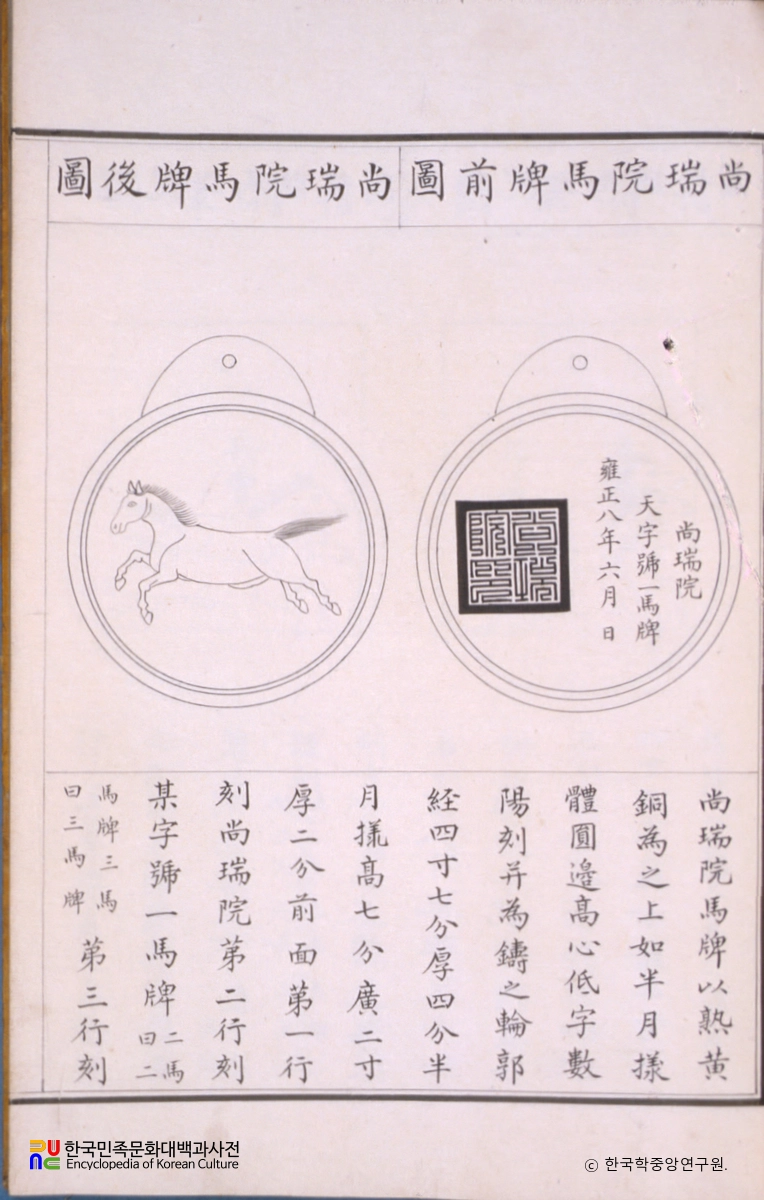 尚瑞院馬牌前圖
尚瑞院馬牌後圖
尚瑞院
天字號一馬牌
雍正八年六月 日
尚瑞院印
尚瑞院馬牌以熟黃
銅為之上如半月㨾
體圓邊高心低字數
陽刻并為鑄之輪郭
経四寸七分厚四分半
月㨾高七分廣二寸
厚二分前面第一行
刻尚瑞院第二行刻
某字號一馬牌二馬曰二
馬牌三馬曰三馬牌第三行刻
한국민족문화대백과사전
Encyclopedia of Korean Culture
ⓒ 한국학중앙연구원.